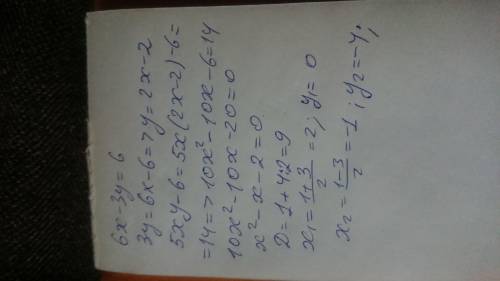 6x-3y=6
3y=6x-6=>y=2x-2
5xy-6=5x(2x-2)-6=
=14=>10x²-10x-6=14
10x²-10x-20=0
x²-x-2=0
D=1+4·2=9
x₁=(1+3)/2=2; y₁=0
x₂=(1-3)/2=-1; y₂=-4;